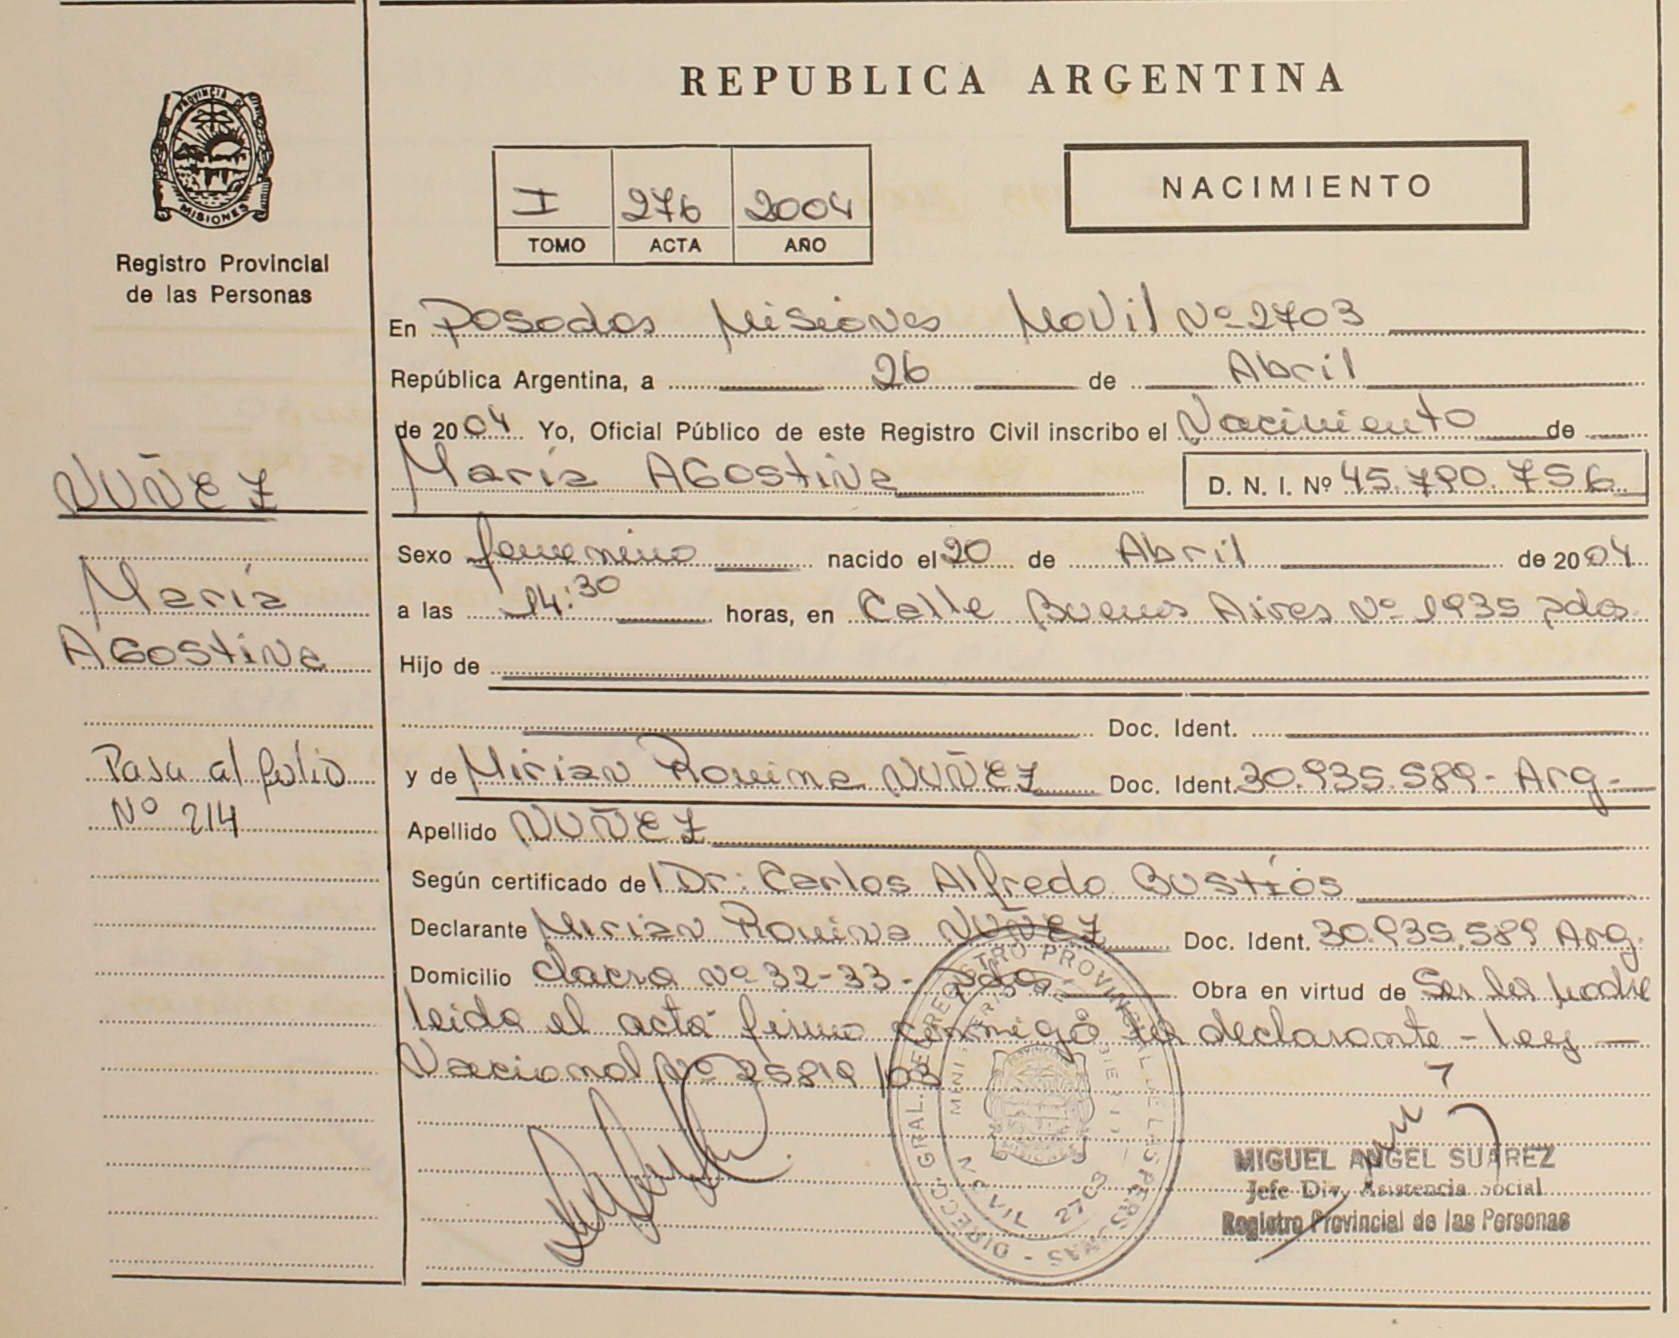 PROVINCIA DE
MISIONES
Registro Provincial
de las Personas
NUÑEZ
María
AGostina
Pasa al folio
Nº 214
REPUBLICA ARGENTINA
I 276 2004
TOMO ACTA AÑO
NACIMIENTO
En Posadas Misiones Movil Nº 2703
República Argentina, a 26 de Abril
de 2004 Yo, Oficial Público de este Registro Civil inscribo el Nacimiento de
María AGostina D. N. I. Nº 45.790.756
Sexo femenino nacido el 20 de Abril de 2004
a las 14:30 horas, en Calle Buenos Aires Nº 1935 pdas
Hijo de
Doc. Ident.
y de Mirian Romina NUÑEZ Doc. Ident. 30.935.589 - Arg -
Apellido NUÑEZ
Según certificado del Dr. Carlos Alfredo Bustios
Declarante Mirian Romina NUÑEZ Doc. Ident. 30.935.589 Arg.
Domicilio chacra Nº 32-33 - pdas Obra en virtud de Ser la madre
leida el acta firma conmigo la declarante - ley -
Nacional Nº 25819/03
DIRECC. GRAL. DEL REGISTRO PROVINCIAL DE LAS PERSONAS -
MOVIL 2703
MIGUEL ANGEL SUAREZ
Jefe Div. Asistencia Social
Registro Provincial de las Personas